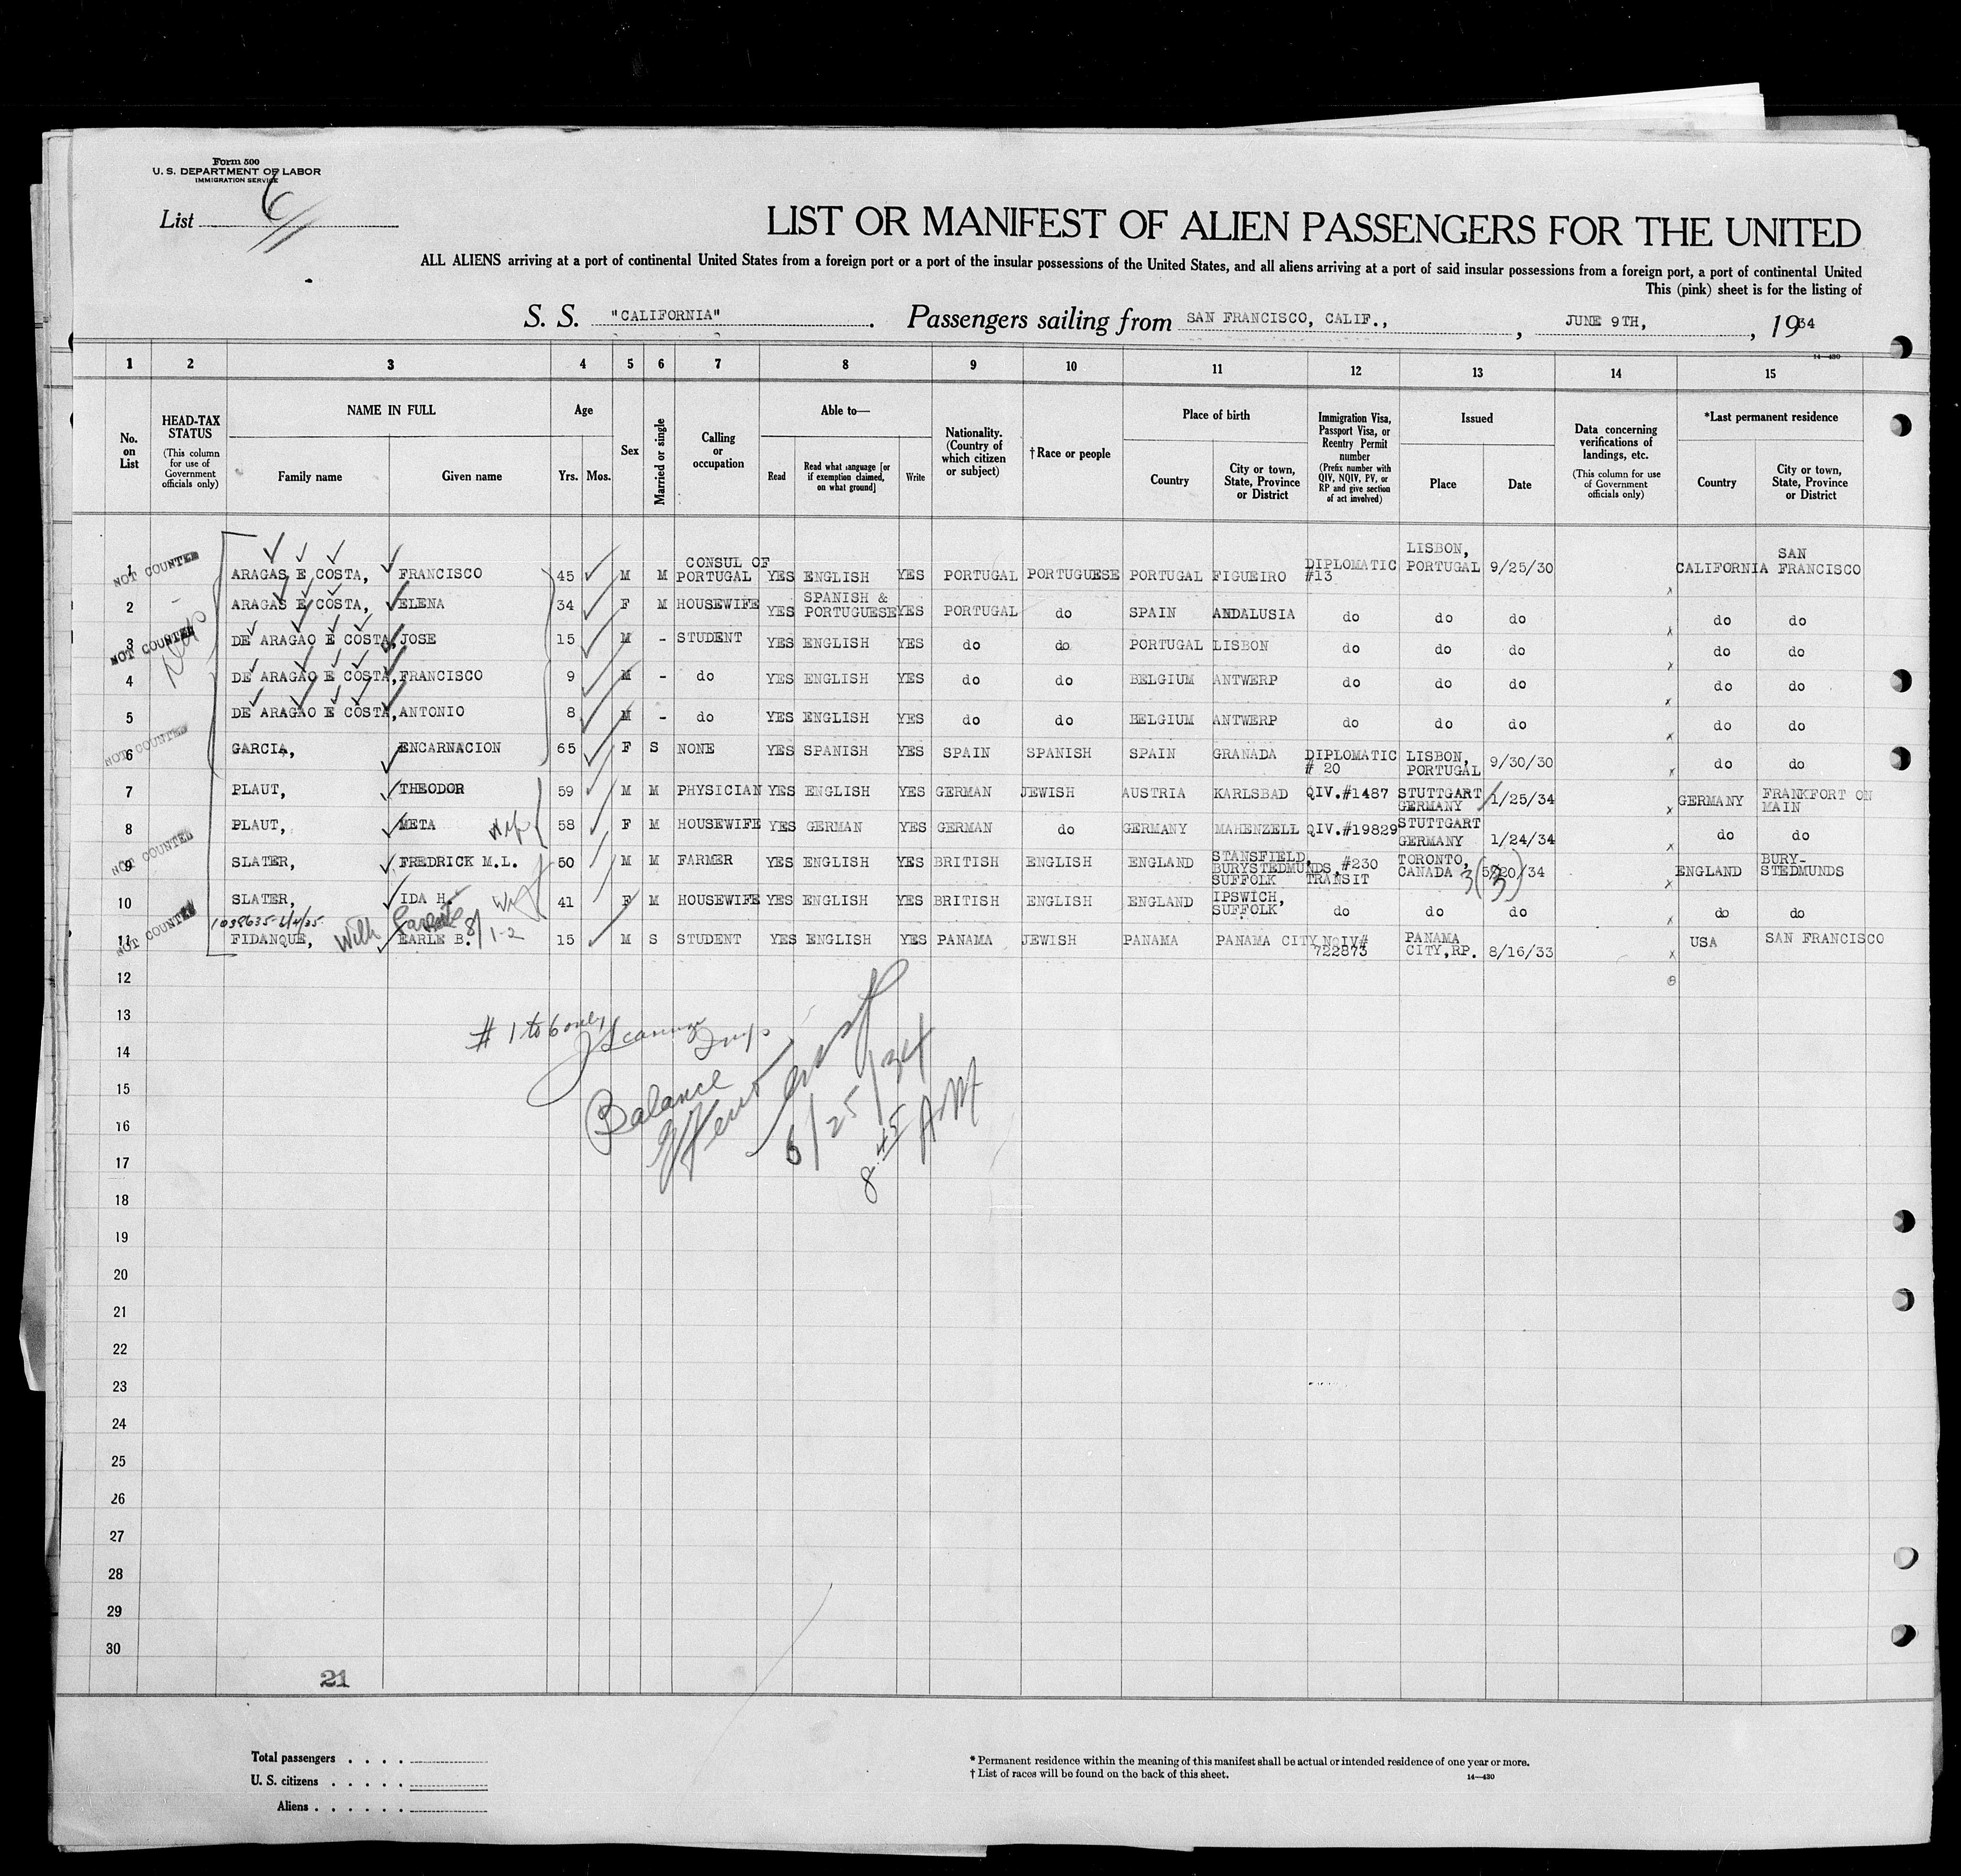 Form 500
U. S. DEPARTMENT OF LABOR
IMMIGRATION SERVICE
List 6
LIST OR MANIFEST OF ALIEN PASSENGERS FOR THE UNITED
ALL ALIENS arriving at a port of continental United States from a foreign port or a port of the insular possessions of the United States, and all aliens arriving at a port of said insular possessions from a foreign port, a port of continental United
This (pink) sheet is for the listing of
S. S. "CALIFORNIA". Passengers sailing from SAN FRANCISCO, CALIF., , JUNE 9TH, , 1934
14—430
1 2 3 4 5 6 7 8 9 10 11 12 13 14 15
No. on List
HEAD-TAX STATUS
(This column for use of Government officials only)
NAME IN FULL
Family name
Given name
Age
Yrs. Mos.
Sex
Married or single
Calling or occupation
Able to—
Read
Read what language [or if exemption claimed, on what ground]
Write
Nationality. (Country of which citizen or subject)
†Race or people
Place of birth
Country
City or town, State, Province or District
Immigration Visa, Passport Visa, or Reentry Permit number
(Prefix number with QIV, NQIV, PV, or RP and give section of act involved)
Issued
Place
Date
Data concerning verifications of landings, etc.
(This column for use of Government officials only)
*Last permanent residence
Country
City or town, State, Province or District
1 NOT COUNTED ARAGAS E COSTA, FRANCISCO 45 M M CONSUL OF PORTUGAL YES ENGLISH YES PORTUGAL PORTUGUESE PORTUGAL FIGUEIRO DIPLOMATIC #13 LISBON, PORTUGAL 9/25/30 CALIFORNIA SAN FRANCISCO
2 ARAGAS E COSTA, ELENA 34 F M HOUSEWIFE YES SPANISH & PORTUGUESE YES PORTUGAL do SPAIN ANDALUSIA do do do do do
3 NOT COUNTED DE ARAGAO E COSTA, JOSE 15 M - STUDENT YES ENGLISH YES do do PORTUGAL LISBON do do do do do
4 DE ARAGAO E COSTA, FRANCISCO 9 M - do YES ENGLISH YES do do BELGIUM ANTWERP do do do do do
5 DE ARAGAO E COSTA, ANTONIO 8 M - do YES ENGLISH YES do do BELGIUM ANTWERP do do do do do
6 NOT COUNTED GARCIA, ENCARNACION 65 F S NONE YES SPANISH YES SPAIN SPANISH SPAIN GRANADA DIPLOMATIC # 20 LISBON, PORTUGAL 9/30/30 do do
7 PLAUT, THEODOR 59 M M PHYSICIAN YES ENGLISH YES GERMAN JEWISH AUSTRIA KARLSBAD QIV.#1487 STUTTGART GERMANY 1/25/34 GERMANY FRANKFORT ON MAIN
8 PLAUT, META 58 F M HOUSEWIFE YES GERMAN YES GERMAN do GERMANY MAHENZELL QIV.#19829 STUTTGART GERMANY 1/24/34 do do
9 NOT COUNTED SLATER, FREDRICK M.L. 50 M M FARMER YES ENGLISH YES BRITISH ENGLISH ENGLAND STANSFIELD, BURYSTEDMUNDS, SUFFOLK #230 TRANSIT TORONTO, CANADA 5/20/34 3 (3) ENGLAND BURY-STEDMUNDS
10 SLATER, IDA H. 41 F M HOUSEWIFE YES ENGLISH YES BRITISH ENGLISH ENGLAND IPSWICH, SUFFOLK do do do do do
1038635-6/4/35 With Parents 8/1-2
11 NOT COUNTED FIDANQUE, EARLE B. 15 M S STUDENT YES ENGLISH YES PANAMA JEWISH PANAMA PANAMA CITY NQIV# 722873 PANAMA CITY, RP. 8/16/33 USA SAN FRANCISCO
12
13
# 1 to 6 only
14
15
Balance
16
6/25/34
17
8:45 AM
18
19
20
21
22
23
24
25
26
27
28
29
30
21
Total passengers . . . .
U. S. citizens . . . . .
Aliens . . . . . .
* Permanent residence within the meaning of this manifest shall be actual or intended residence of one year or more.
† List of races will be found on the back of this sheet.
14—430